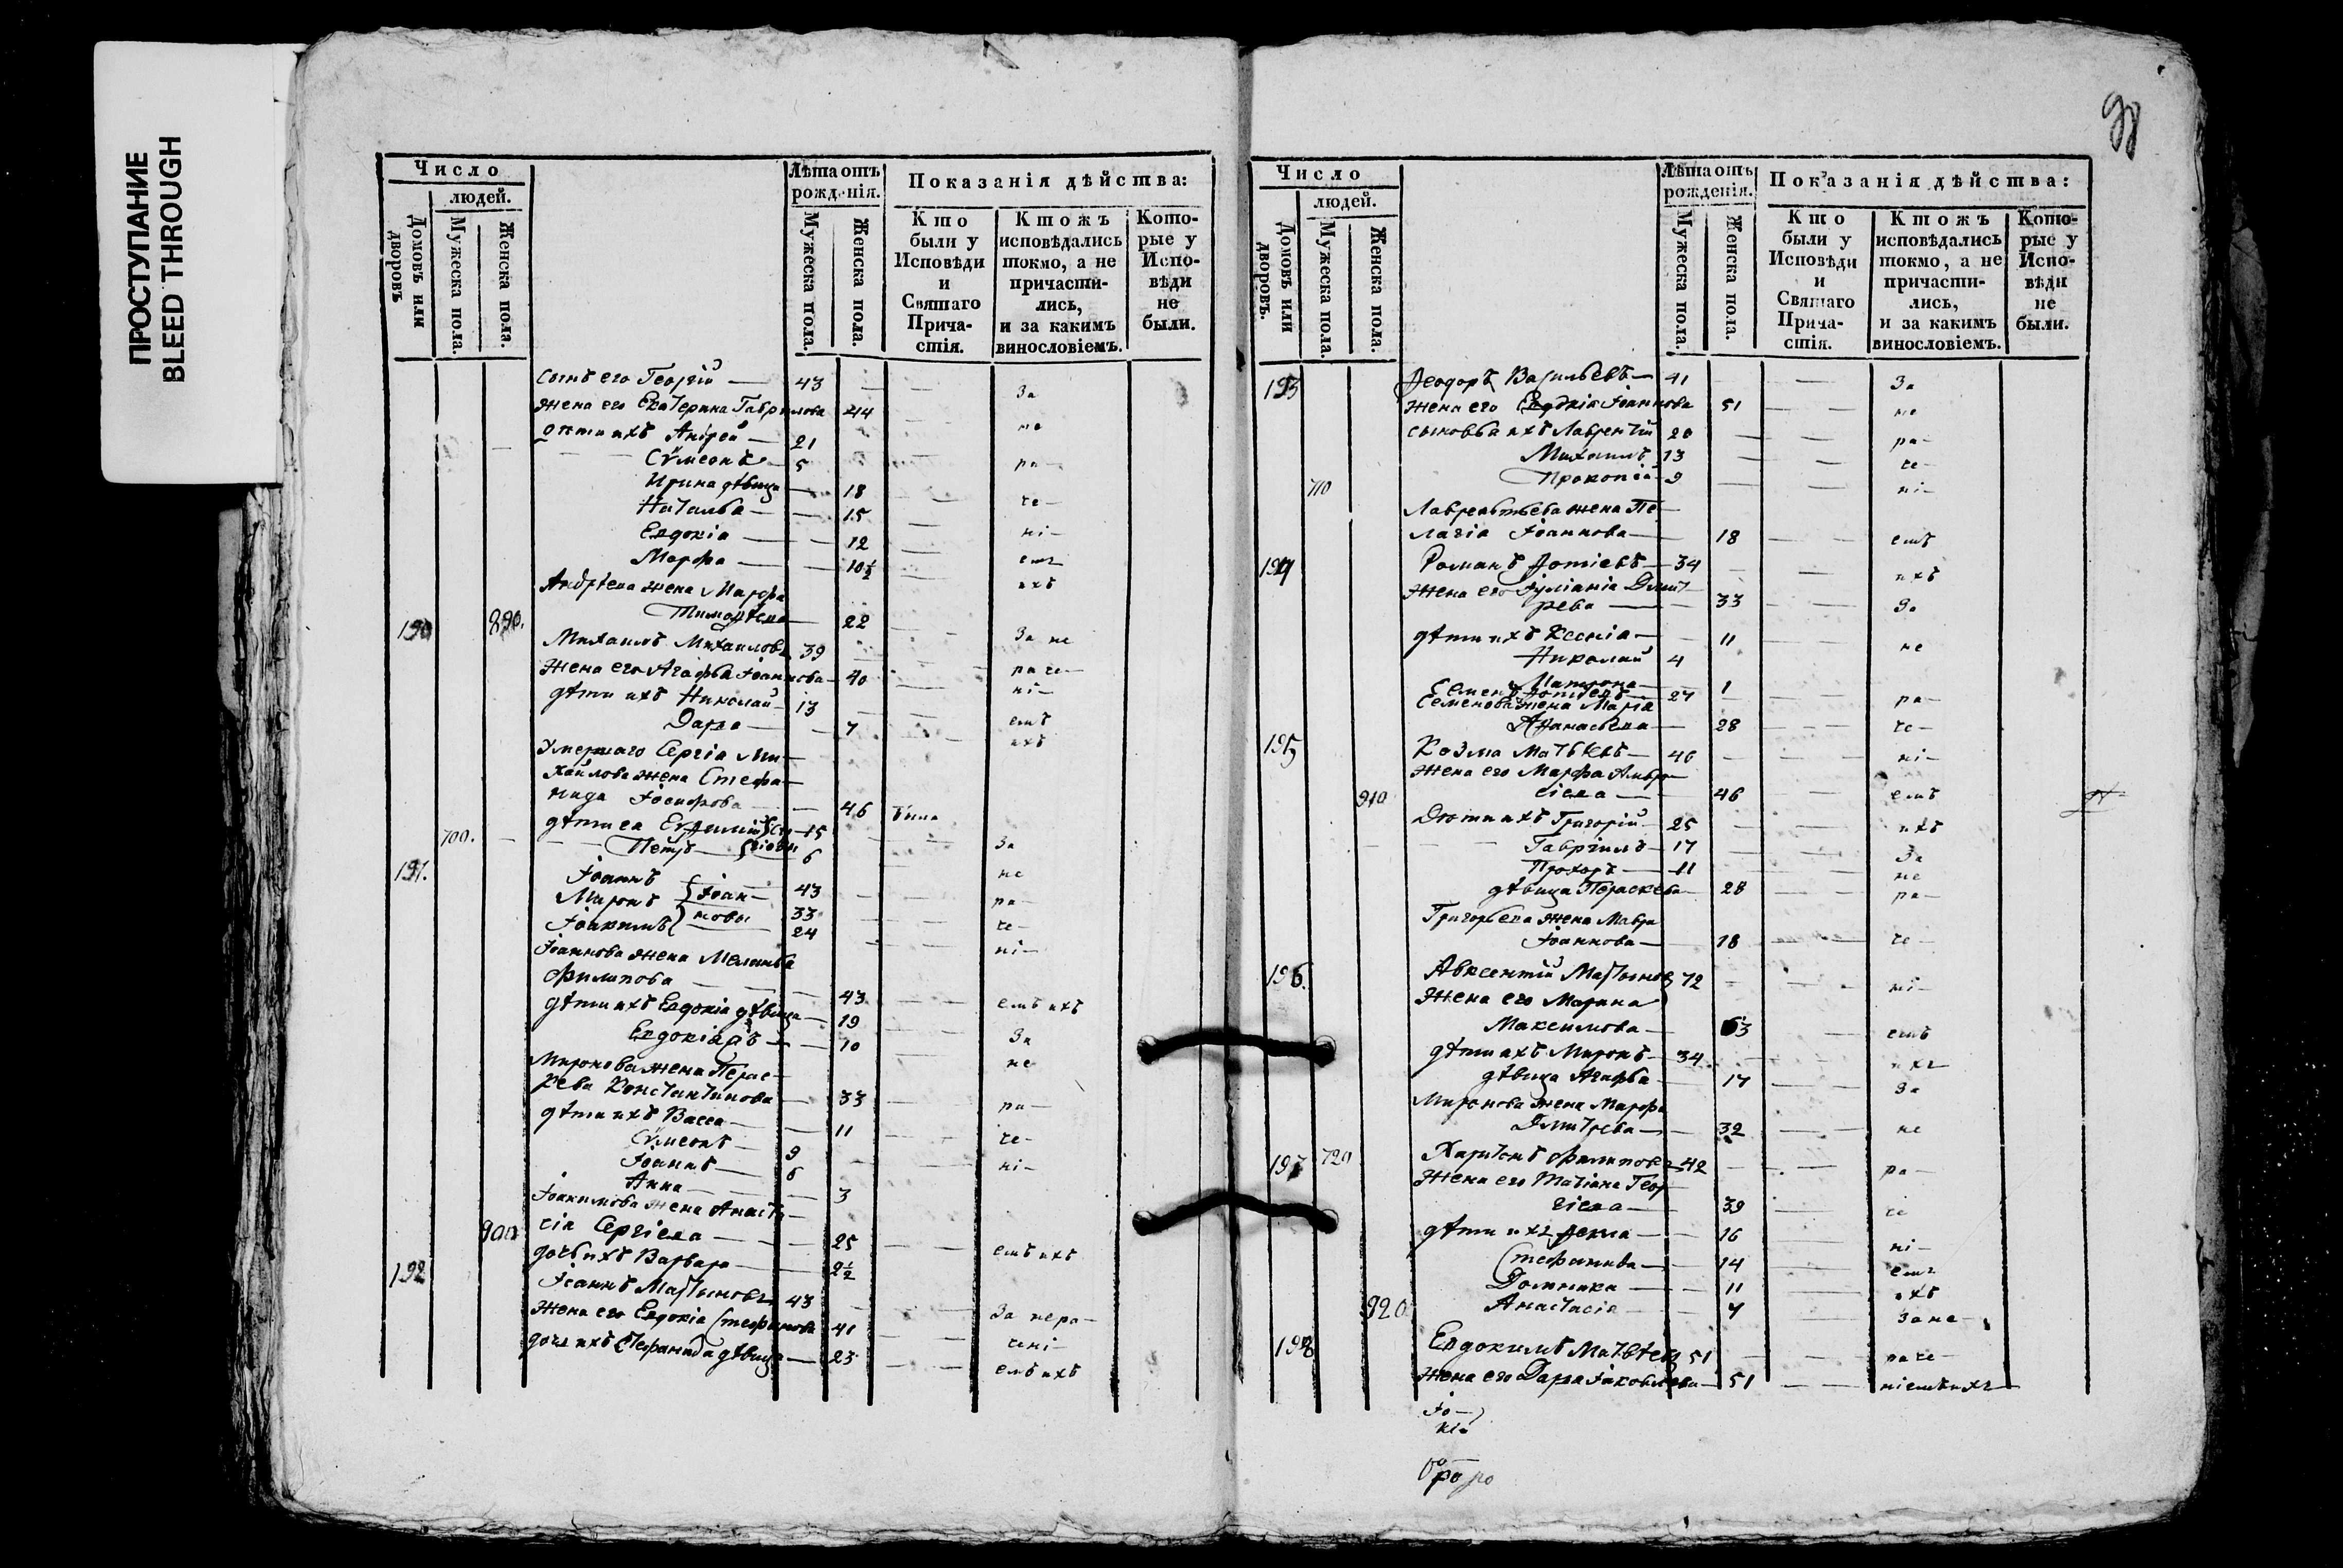 ПРОСТУПАНИЕ
BLEED THROUGH
98
Число
людей.
Домовъ или дворовъ
Мужеска пола.
Женска пола.
Лѣта отъ рожденія.
Мужеска пола.
Женска пола.
Показанія дѣйства:
Кто были у Исповѣди и Святаго Причастія.
Ктожъ исповѣдались токмо, а не причастились, и за какимъ винословіемъ.
Которые у Исповѣди не были.
сынъ его Георгій — 43 За
жена его Екатерина Гаврилова 44
дѣти ихъ Андрей — 21 не
Сѵмеонъ — 5 ра—
Ирина дѣвица — 18
Наталья — 15 че—
Евдокіа — 12 ні—
Марфа — 10½ емъ
Андрѣева жена Марфа ихъ
Тимоѳѣева — 22
190 890. Михаилъ Михаиловъ 39 За не
жена его Агафья Іоаннова — 40 раче—
дѣти ихъ Николай — 13 ні—
Дарья — 7 емъ
Умершаго Сергіа Ми— ихъ
хайлова жена Стефа—
нида Іосифова — 46 была
дѣти еа Евѳимій Сер— 15
700. Петръ гіевы 6 За
191. Іоаннъ 43 не
Миронъ Іоан— 33 ра—
Іоакимъ новы 24 че—
Іоаннова жена Меланья ні—
Филипова — 43
дѣти ихъ Евдокіа дѣвица — 19 емъ ихъ
Евдокіа — 10 За
Миронова жена Парас— не
кева Константинова — 33
дѣти ихъ Васса — 11 ра—
Сѵмеонъ — 9 че—
Іоаннъ — 6 ні—
Анна — 3
Іоакимова жена Анаста—
900 сіа Сергіева — 25
дочь ихъ Варвара — 2½ емъ ихъ
192 Іоаннъ Мартыновъ 43
жена его Евдокіа Стефанова 41 За нера—
дочь ихъ Стефанида дѣвица — 23 чені—
емъ ихъ
Число
людей.
Домовъ или дворовъ.
Мужеска пола.
Женска пола.
Лѣта отъ рожденія.
Мужеска пола.
Женска пола.
Показанія дѣйства:
Кто были у Исповѣди и Святаго Причастія.
Ктожъ исповѣдались токмо, а не причастились, и за какимъ винословіемъ.
Которые у Исповѣди не были.
193 Ѳеодоръ Васильевъ — 41 За
жена его Евдокіа Іоаннова 51 не
сыновьа ихъ Лаврентій 20 ра—
Михаилъ 13 че—
710 Прокопій — 9 ні—
Лаврентьева жена Пе—
лагіа Іоаннова — 18 емъ
194 Романъ Ѳотіевъ — 34 ихъ
жена его Іуліаніа Дмит—
рева — 33 За
дѣти ихъ Ксеніа — 11 не
Николай 4
Матрона — 1
Семенъ Ѳотіевъ — 27 ра—
Семенова жена Маріа
Аѳанасьева — 28 че—
195 Козма Матвѣевъ — 46 ні—
жена его Марфа Амвро—
910 сіева — 46 емъ
Дѣти ихъ Григорій — 25 ихъ
Гавріилъ — 17 За
Прохоръ — 11 не
дѣвица Параскева 28 ра—
Григорьева жена Мавра
Іоаннова — 18 че—
196. Авксентій Мартыновъ 72 ні—
жена его Марина
Максимова — 63 емъ
дѣти ихъ Миронъ — 34 ихъ
дѣвица Агафья — 17 За
Миронова жена Марфа
Дмитрева — 32 не
197 720 Харитонъ Филиповъ — 42 ра—
жена его Татіана Геор—
гіева — 39 че
дѣти ихъ Ѳекла — 16 ні—
Стефанида — 14 емъ
Домника — 11 ихъ
920 Анастасіа — 7 За не—
198 Евдокимъ Матвѣевъ 51 раче—
жена его Дарьа Іаковлева — 51 ніемъ ихъ